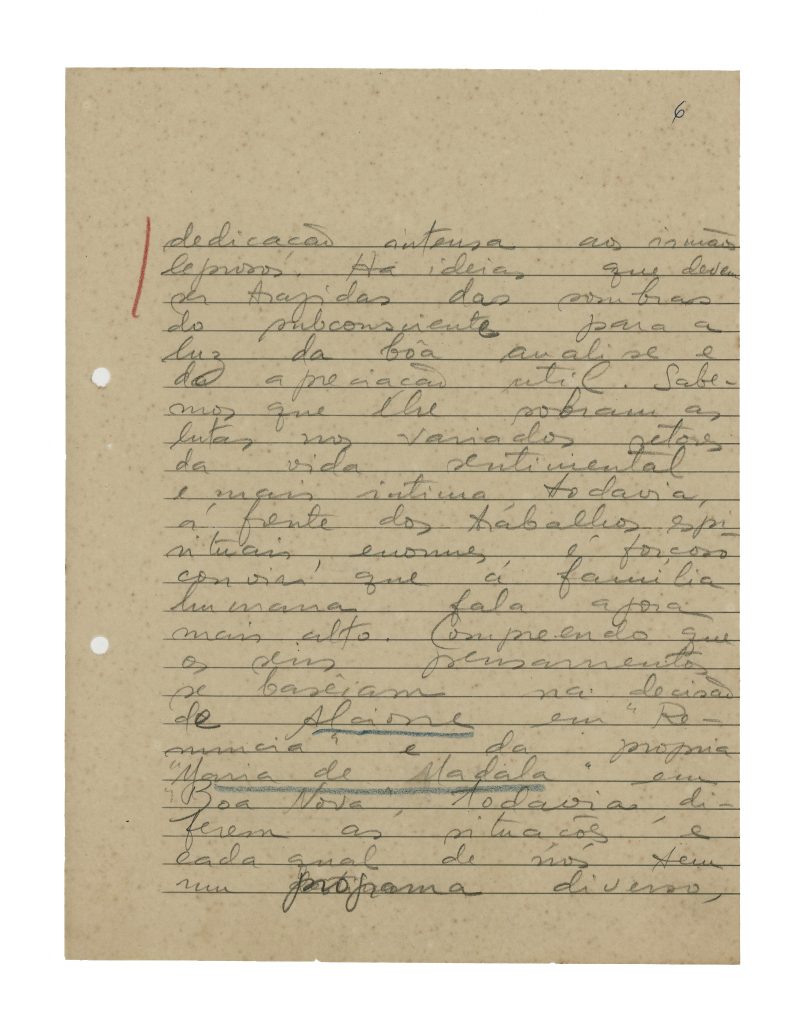 6
dedicação intensa aos irmãos
leprosos. Ha ideias que devem
ser trazidas das sombras
do subconsciente para a
luz da bôa analise e
da apreciação util. Sabe-
mos que lhe sobram as
lutas nos variados setores
da vida sentimental
e mais intima todavia,
á frente dos trabalhos espi
rituais enormes é forçoso
convir que a familia
humana fala agora
mais alto. Compreendo que
os seus pensamentos
se baseiam na decisão
de Alcione em "Re-
nuncia" e da propria
"Maria de Madala" em
"Bôa Nova" todavia, di-
ferem as situações e
cada qual de nós tem
um programa diverso,